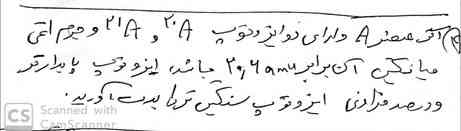 اگر عنصر A دارای دو ایزوتوپ ²⁰A و ²¹A و جرم اتمی
میانگین آن برابر ۲۰٫۲amu باشد، ایزوتوپ پایدارتر
و درصد فراوانی ایزوتوپ سنگین تر را بدست آورید.
CS Scanned with
CamScanner